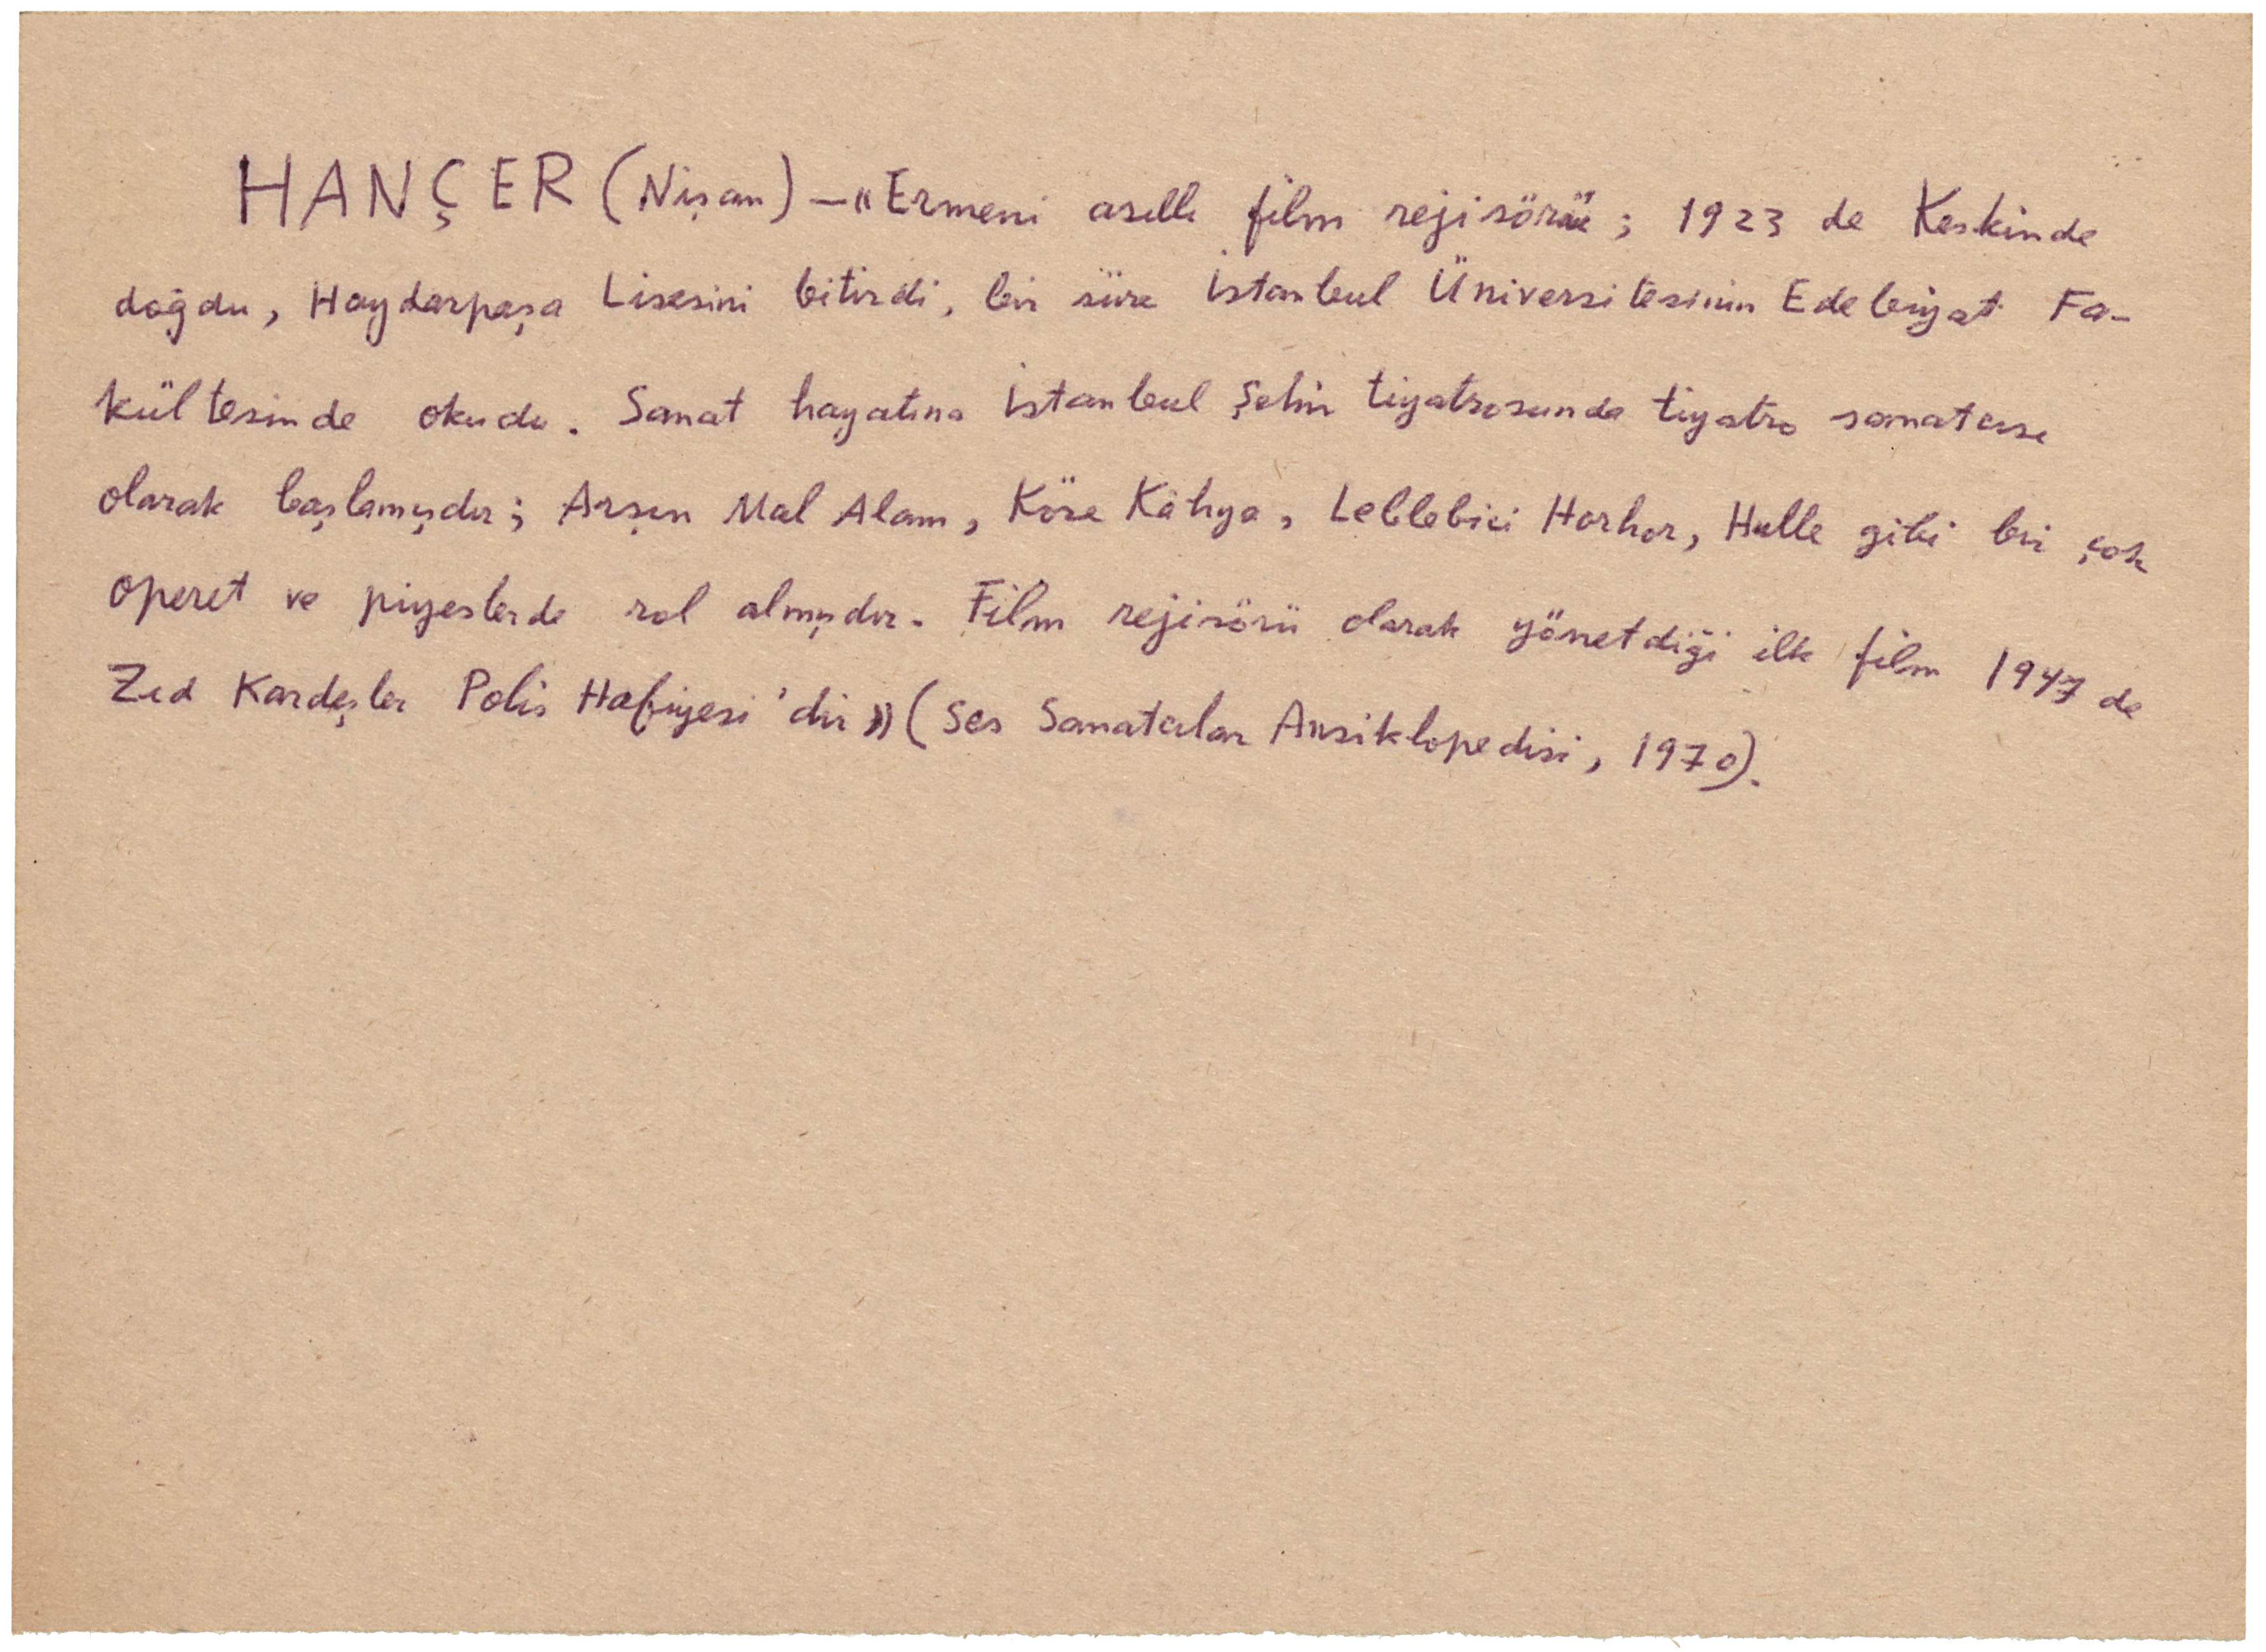 HANÇER (Nişan) — «Ermeni asıllı film rejisörü; 1923 de Keskinde
doğdu, Haydarpaşa Lisesini bitirdi, bir süre İstanbul Üniversitesinin Edebiyat Fa-
kültesinde okudu. Sanat hayatına İstanbul Şehir tiyatrosunda tiyatro sanatcısı
olarak başlamışdır; Arşın Mal Alan, Köse Kâhya, Leblebici Horhor, Hulle gibi bir çok
operet ve piyeslerde rol almışdır. Film rejisörü olarak yönetdiği ilk film 1947 de
Zıd Kardeşler Polis Hafiyesi'dir» (Ses Sanatcılar Ansiklopedisi, 1970).